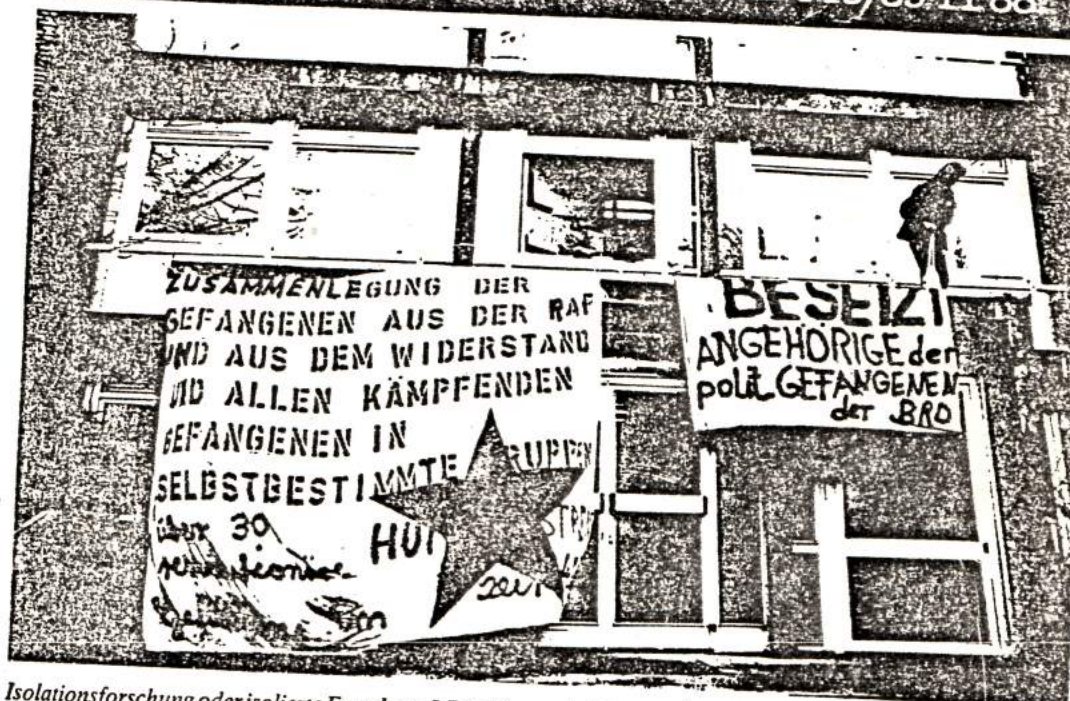 88
ZUSAMMENLEGUNG DER
GEFANGENEN AUS DER RAF
UND AUS DEM WIDERSTAND
UND ALLEN KÄMPFENDEN
GEFANGENEN IN
SELBSTBESTIMMTE RUPPEN
über 30
HUN
BESETZT
ANGEHÖRIGE der
polit. GEFANGENEN
der BRD
Isolationsforschung oder isolierte